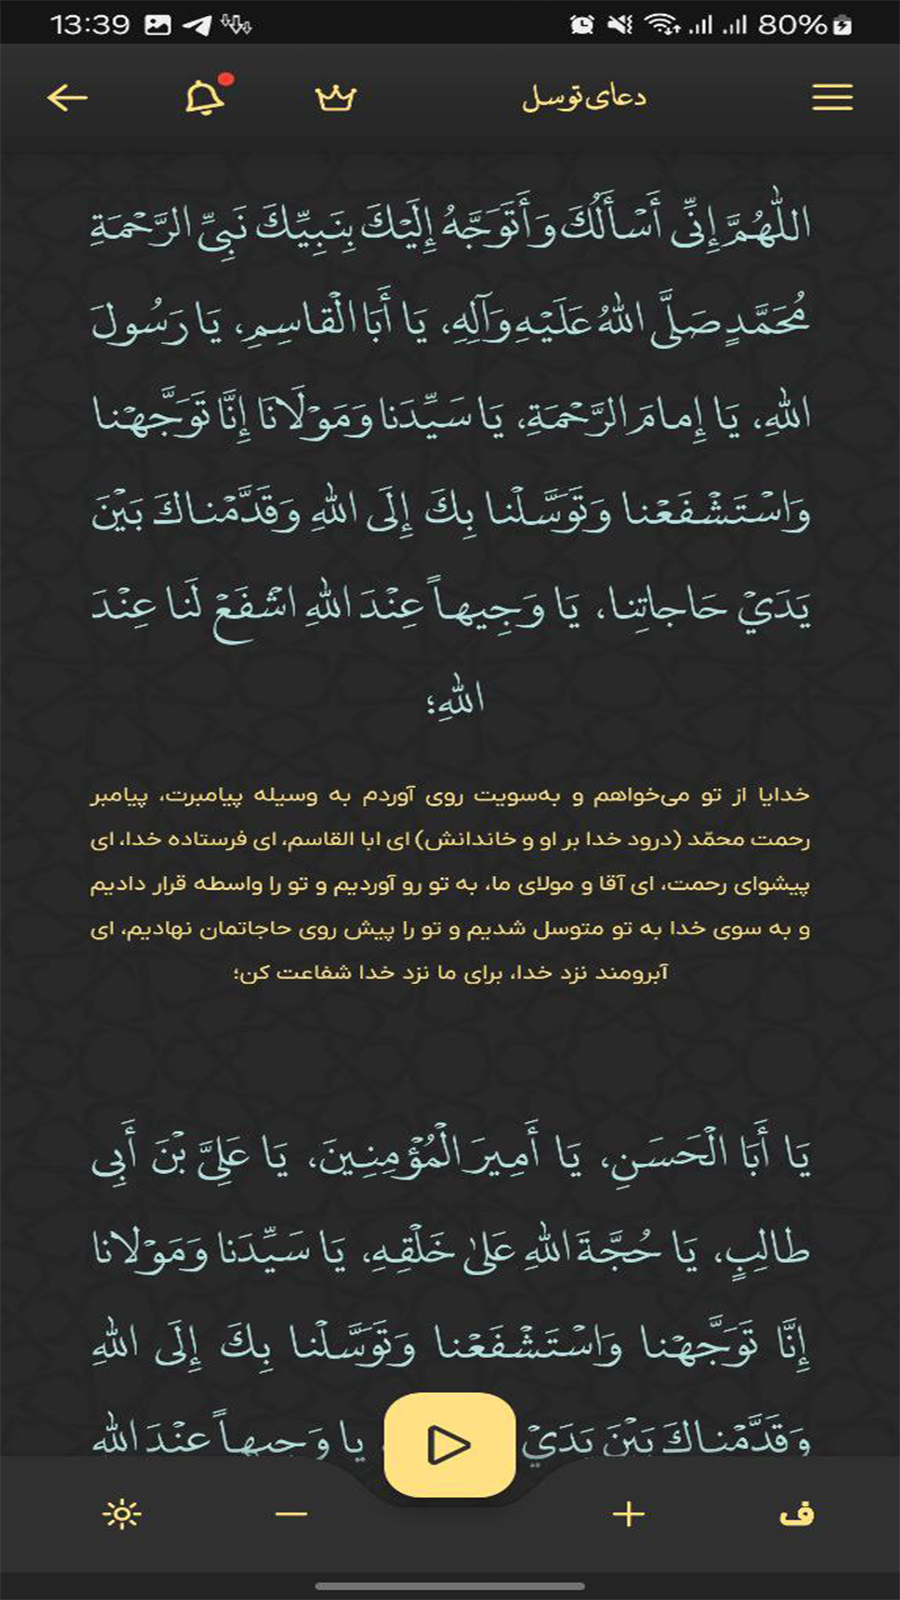 13:39
80%
دعای توسل
اللّٰهُمَّ إِنِّي أَسْأَلُكَ وَأَتَوَجَّهُ إِلَيْكَ بِنَبِيِّكَ نَبِيِّ الرَّحْمَةِ
مُحَمَّدٍ صَلَّى اللّٰهُ عَلَيْهِ وَآلِهِ، يَا أَبَا الْقاسِمِ، يَا رَسُولَ
اللّٰهِ، يَا إِمامَ الرَّحْمَةِ، يَا سَيِّدَنا وَمَوْلَانَا إِنَّا تَوَجَّهْنا
وَاسْتَشْفَعْنا وَتَوَسَّلْنا بِكَ إِلَى اللّٰهِ وَقَدَّمْناكَ بَيْنَ
يَدَيْ حَاجاتِنا، يَا وَجِيهاً عِنْدَ اللّٰهِ اشْفَعْ لَنا عِنْدَ
اللّٰهِ؛
خدایا از تو می‌خواهم و به‌سویت روی آوردم به وسیله پیامبرت، پیامبر
رحمت محمّد (درود خدا بر او و خاندانش) ای ابا القاسم، ای فرستاده خدا، ای
پیشوای رحمت، ای آقا و مولای ما، به تو رو آوردیم و تو را واسطه قرار دادیم
و به سوی خدا به تو متوسل شدیم و تو را پیش روی حاجاتمان نهادیم، ای
آبرومند نزد خدا، برای ما نزد خدا شفاعت کن؛
يَا أَبَا الْحَسَنِ، يَا أَمِيرَ الْمُؤْمِنِينَ، يَا عَلِيَّ بْنَ أَبِي
طالِبٍ، يَا حُجَّةَ اللّٰهِ عَلىٰ خَلْقِهِ، يَا سَيِّدَنا وَمَوْلانا
إِنَّا تَوَجَّهْنا وَاسْتَشْفَعْنا وَتَوَسَّلْنا بِكَ إِلَى اللّٰهِ
وَقَدَّمْناكَ بَيْنَ يَدَيْ يا وَجِيهاً عِنْدَ اللّٰهِ
ف